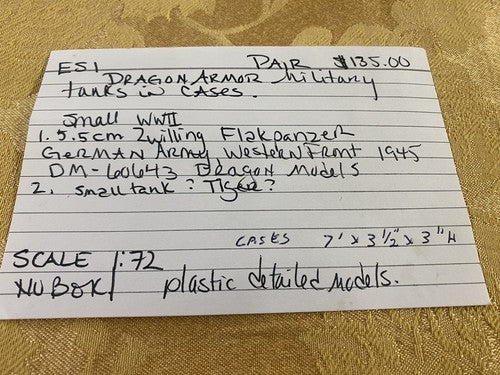 ES1 PAIR $135.00
DRAGON ARMOR military
tanks in CASES.
small WWII
1. 5.5cm Zwilling Flakpanzer
GERMAN ARMY, WESTERN FRONT 1945
DM-60643 Dragon Models
2. small tank? TIGER?
CASES 7' x 3 1/2" x 3" H
SCALE 1:72
NO BOX / plastic detailed models.